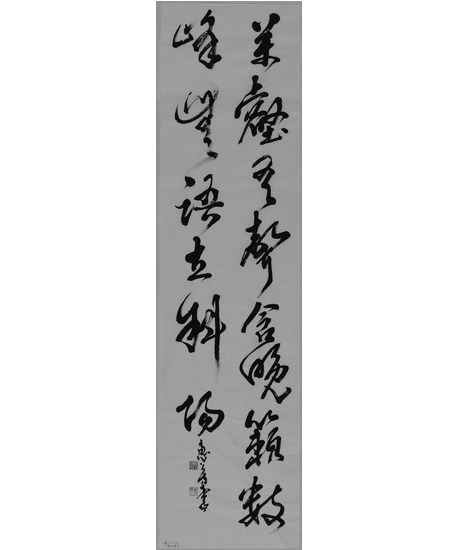 萬壑有聲含晚籟數
峰無語立斜陽